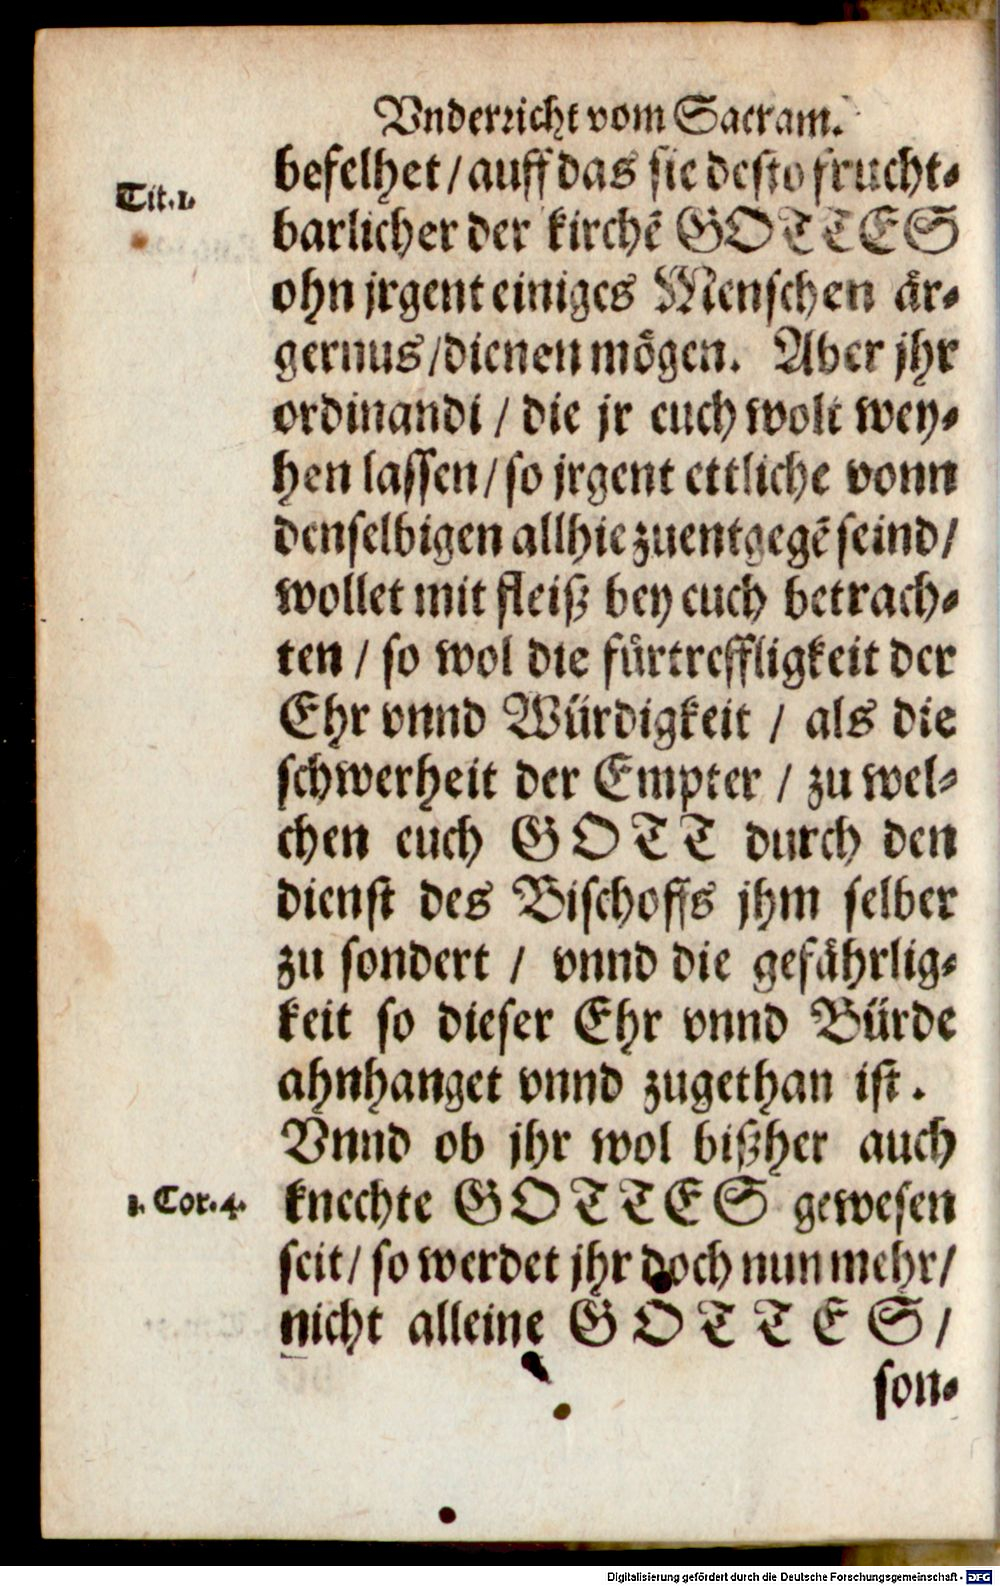 Vnderricht vom Sacram.
befelhet / auff das sie desto frucht-
Tit. 1.
barlicher der kirchẽ GOTTES
ohn jrgent einiges Menschen är-
gernus / dienen mögen. Aber jhr
ordinandi / die jr euch wolt wey-
hen lassen / so jrgent ettliche vonn
denselbigen allhie zuentgegẽ seind /
wollet mit fleiß bey euch betrach-
ten / so wol die fürtreffligkeit der
Ehr vnnd Würdigkeit / als die
schwerheit der Empter / zu wel-
chen euch GOTT durch den
dienst des Bischoffs jhm selber
zu sondert / vnnd die gefährlig-
keit so dieser Ehr vnnd Bürde
ahnhanget vnnd zugethan ist.
Vnnd ob jhr wol bißher auch
1. Cor. 4.
knechte GOTTES gewesen
seit / so werdet jhr doch nun mehr /
nicht alleine GOTTES /
son-
Digitalisierung gefördert durch die Deutsche Forschungsgemeinschaft - DFG